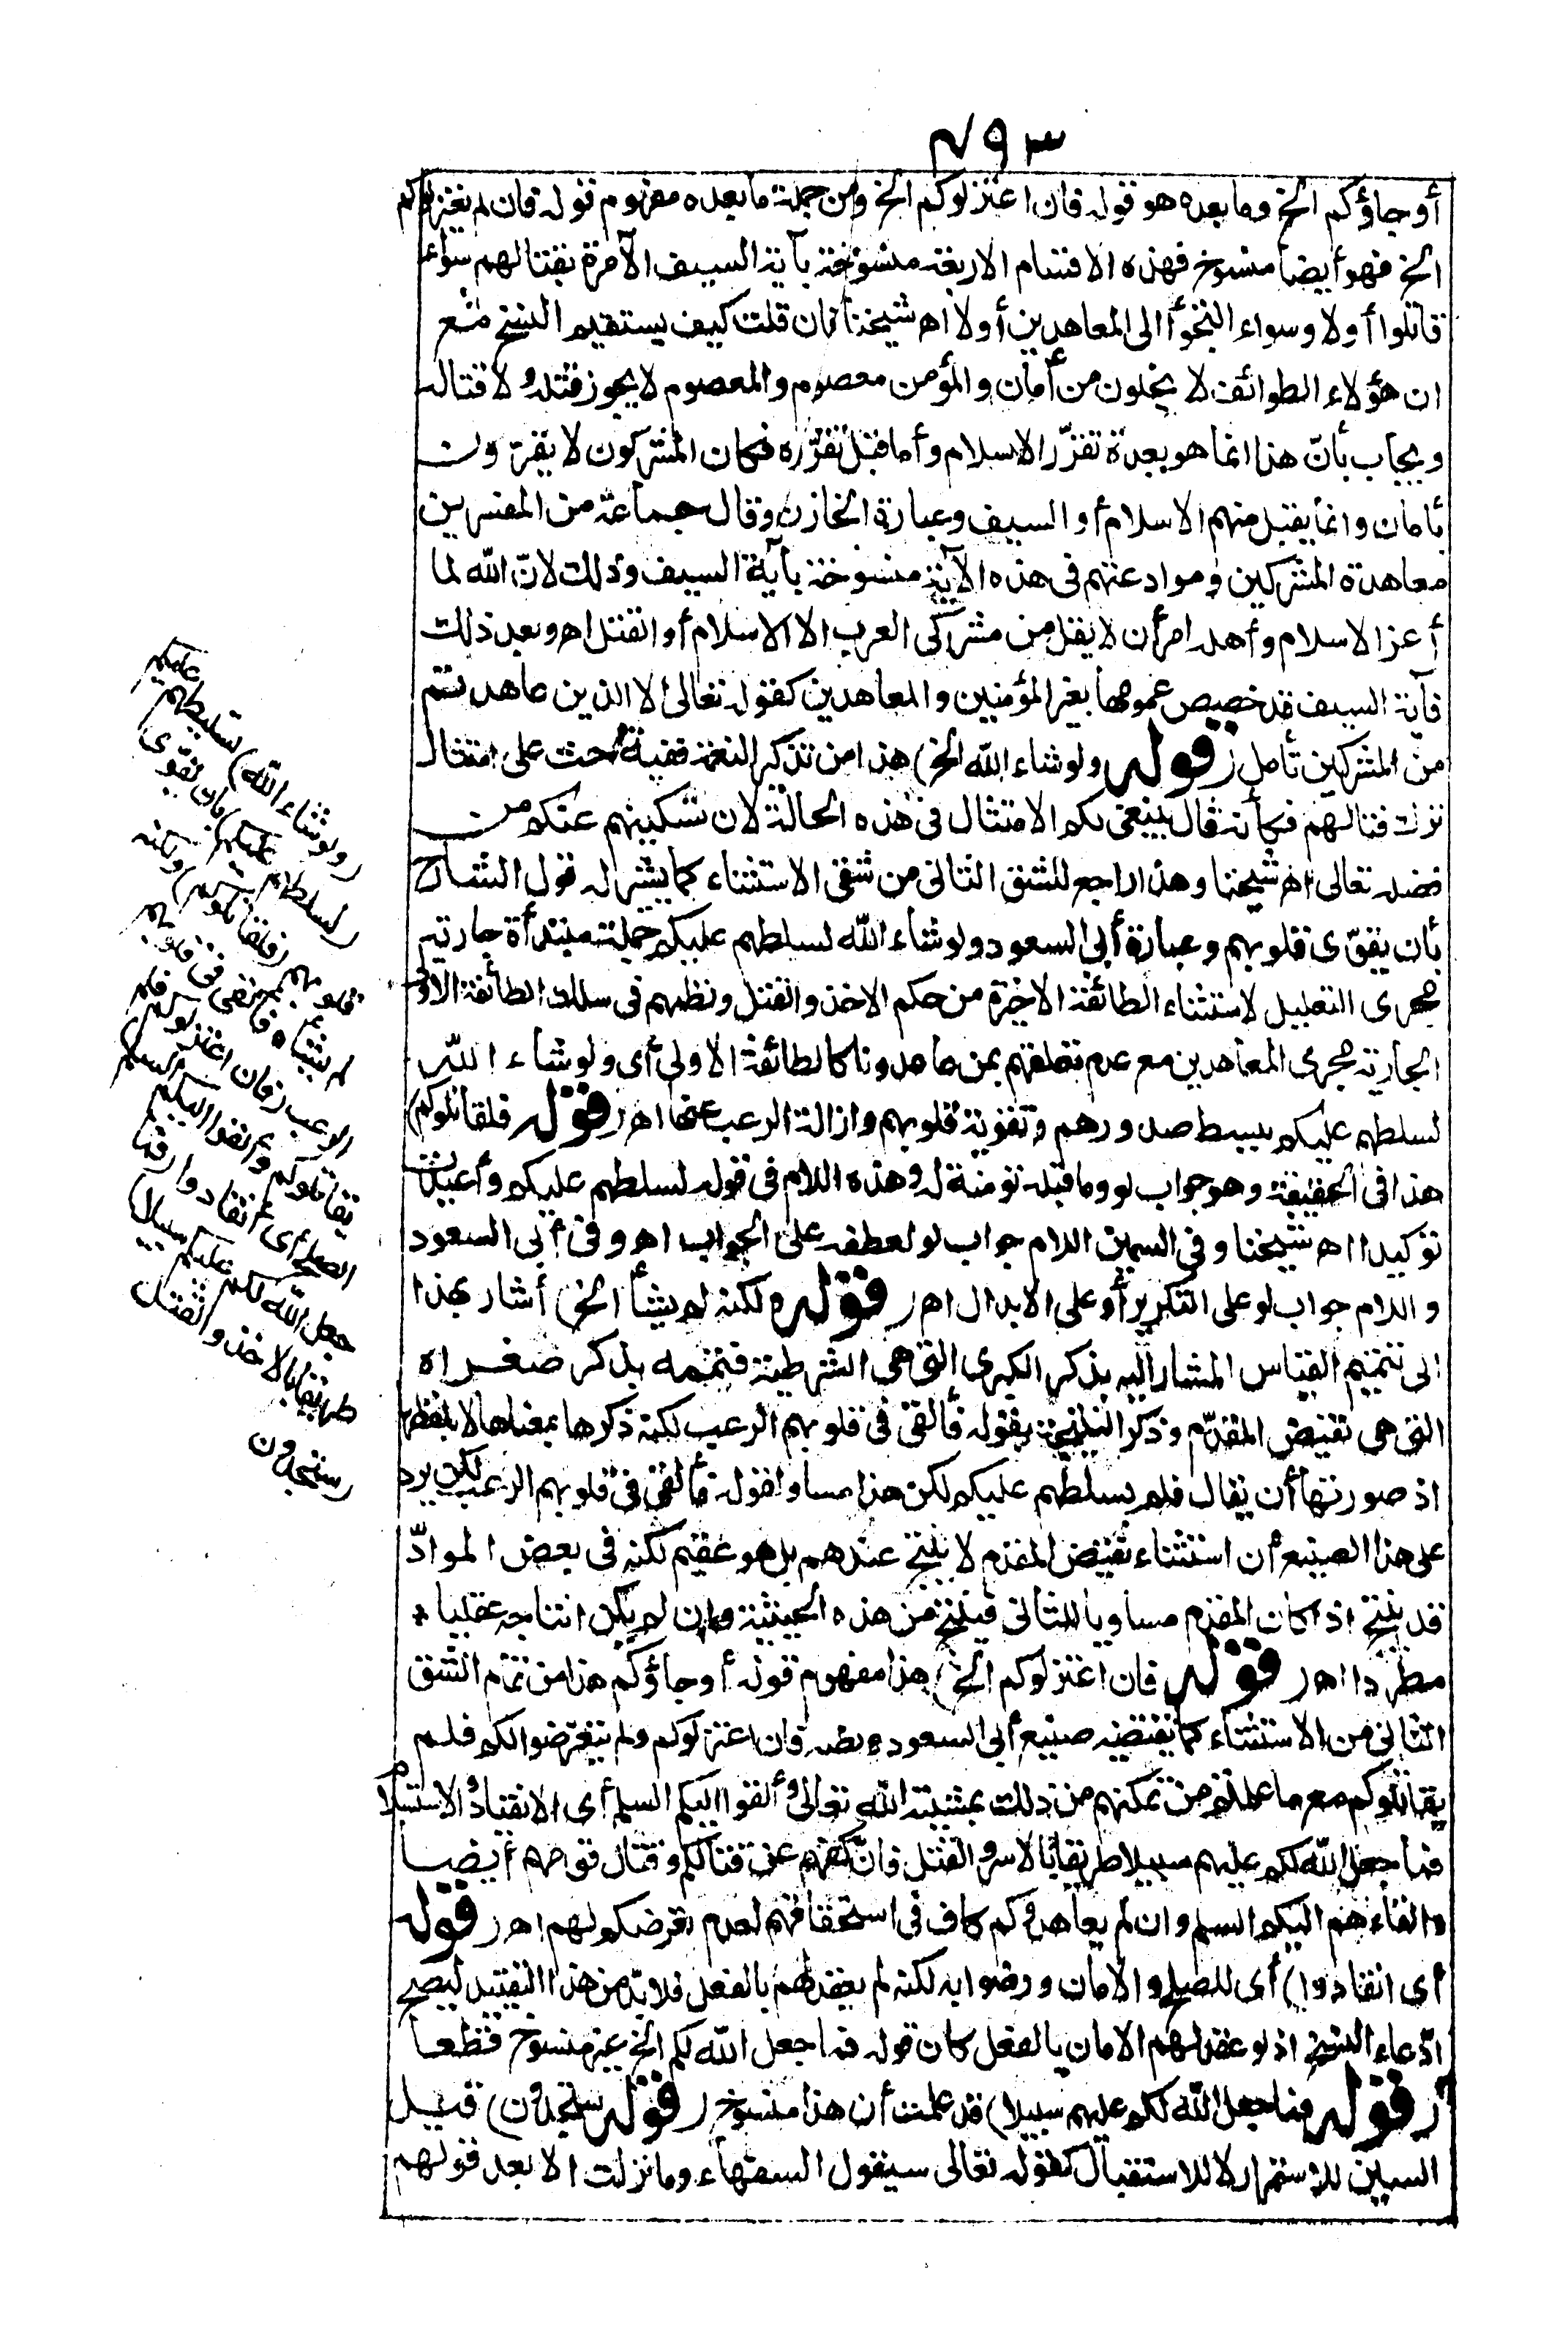 ٧٩٣
أو جاؤكم الخ وما بعده هو قوله فان اعتزلوكم الخ ومن جملة ما بعده مفهوم قوله فان لم يعتزلوكم
الخ فهو أيضا منسوخ فهذه الاقسام الاربعة منسوخة بآية السيف الآمرة بقتالهم سواء
قاتلوا أولا وسواء التجؤا الى المعاهدين أولا اه شيخنا فان قلت كيف يستقيم النسخ مع
ان هؤلاء الطوائف لا يخلون من أمان والمؤمن معصوم والمعصوم لا يجوز قتله ولا قتاله
ويجاب بأن هذا انما هو بعد تقرّر الاسلام وأما قبل تقرّره فكان المشركون لا يقرّون
بأمان وانما يقبل منهم الاسلام أو السيف وعبارة الخازن وقال جماعة من المفسرين
معاهدة المشركين وموادعتهم فى هذه الآية منسوخة بآية السيف وذلك لانّ الله لما
أعز الاسلام وأهله أمر أن لا يقبل من مشركى العرب الا الاسلام أو القتل اه وبعد ذلك
فآية السيف قد خصص عمومها بغير المؤمنين والمعاهدين كقوله تعالى الا الذين عاهدتم
من المشركين تأمل (قوله ولو شاء الله الخ) هذا من تذكير النعمة ففيه حث على امتثال
ترك قتالهم فكأنه قال ينبغى لكم الامتثال فى هذه الحالة لان تسكينهم عنكم من
فضله تعالى اه شيخنا وهذا راجع للشق الثانى من شقى الاستثناء كما يشير له قول الشارح
بأن يقوّى قلوبهم وعبارة أبى السعود ولو شاء الله لسلطهم عليكم جملة مبتدأة جارية
مجرى التعليل لاستثناء الطائفة الاخيرة من حكم الاخذ والقتل ونظمهم فى سلك الطائفة الاولى
الجارية مجرى المعاهدين مع عدم تعلقهم بمن عاهدونا كالطائفة الاولى أى ولو شاء الله
لسلطهم عليكم ببسط صدورهم وتقوية قلوبهم وازالة الرعب عنها اه (قوله فلقاتلوكم)
هذا فى الحقيقة وهو جواب لو وما قبله تومئة له وهذه اللام فى قوله لسلطهم عليكم وأعيدت
توكيدا اه شيخنا وفى السمين اللام جواب لو لعطفه على الجواب اه وفى أبى السعود
واللام جواب لو على التكرير أو على الابدال اه (قوله ولكنه لم يشأ الخ) أشار بهذا
الى تتميم القياس المشار اليه بذكر الكبرى التى هى الشرطية فتممه بذكر صغراه
التى هى نقيض المقدّم وذكر النتيجة بقوله فألقى فى قلوبهم الرعب لكنه ذكرها بمعناها لا بلفظها
اذ صورتها أن يقال فلم يسلطهم عليكم لكن هذا مساو لقوله فألقى فى قلوبهم الرعب لكن يرد
على هذا الصنيع أن استثناء نقيض المقدم لا ينتج عندهم بل هو عقيم لكنه فى بعض الموادّ
قد ينتج اذا كان المقدم مساويا للتالى فينتج من هذه الحيثية وان لم يكن انتاجه عقليا
مطردا اه (قوله فان اعتزلوكم الخ) هذا مفهوم قوله أو جاؤكم هذا من تمام الشق
الثانى من الاستثناء كما يقتضيه صنيع أبى السعود ونصه فان اعتزلوكم ولم يتعرّضوا لكم فلم
يقاتلوكم مع ما علمتم من تمكنهم من ذلك بمشيئة الله تعالى وألقوا اليكم السلم أى الانقياد والاستسلام
فما جعل الله لكم عليهم سبيلا طريقا بالاسر والقتل فانّ كفهم عن قتالكم وقتال قومهم أيضا
والقاءهم اليكم السلم وان لم يعاهدوكم كاف فى استحقاقهم لعدم تعرضكم لهم اه (قوله
أى انقادوا) أى للصلح والامان ورضوا به لكنه لم يعقد لهم بالفعل فلا بدّ من هذا التقييد ليصح
ادّعاء النسخ اذ لو عقد لهم الامان بالفعل كان قوله فما جعل الله لكم الخ غير منسوخ قطعا
(قوله فما جعل الله لكم عليهم سبيلا) قد علمت أن هذا منسوخ (قوله ستجدون) قيل
السين للاستمرار لا للاستقبال كقوله تعالى سيقول السفهاء وما نزلت الا بعد قولهم
(ولو شاء الله) تسليطهم عليكم
(لسلطهم عليكم) بأن يقوّى
قلوبهم (فلقاتلوكم) ولكنه
لم يشأه فألقى فى قلوبهم
الرعب (فان اعتزلوكم فلم
يقاتلوكم وألقوا اليكم السلم)
الصلح أى انقادوا (فما
جعل الله لكم عليهم سبيلا)
طريقا بالاخذ والقتل
(ستجدون